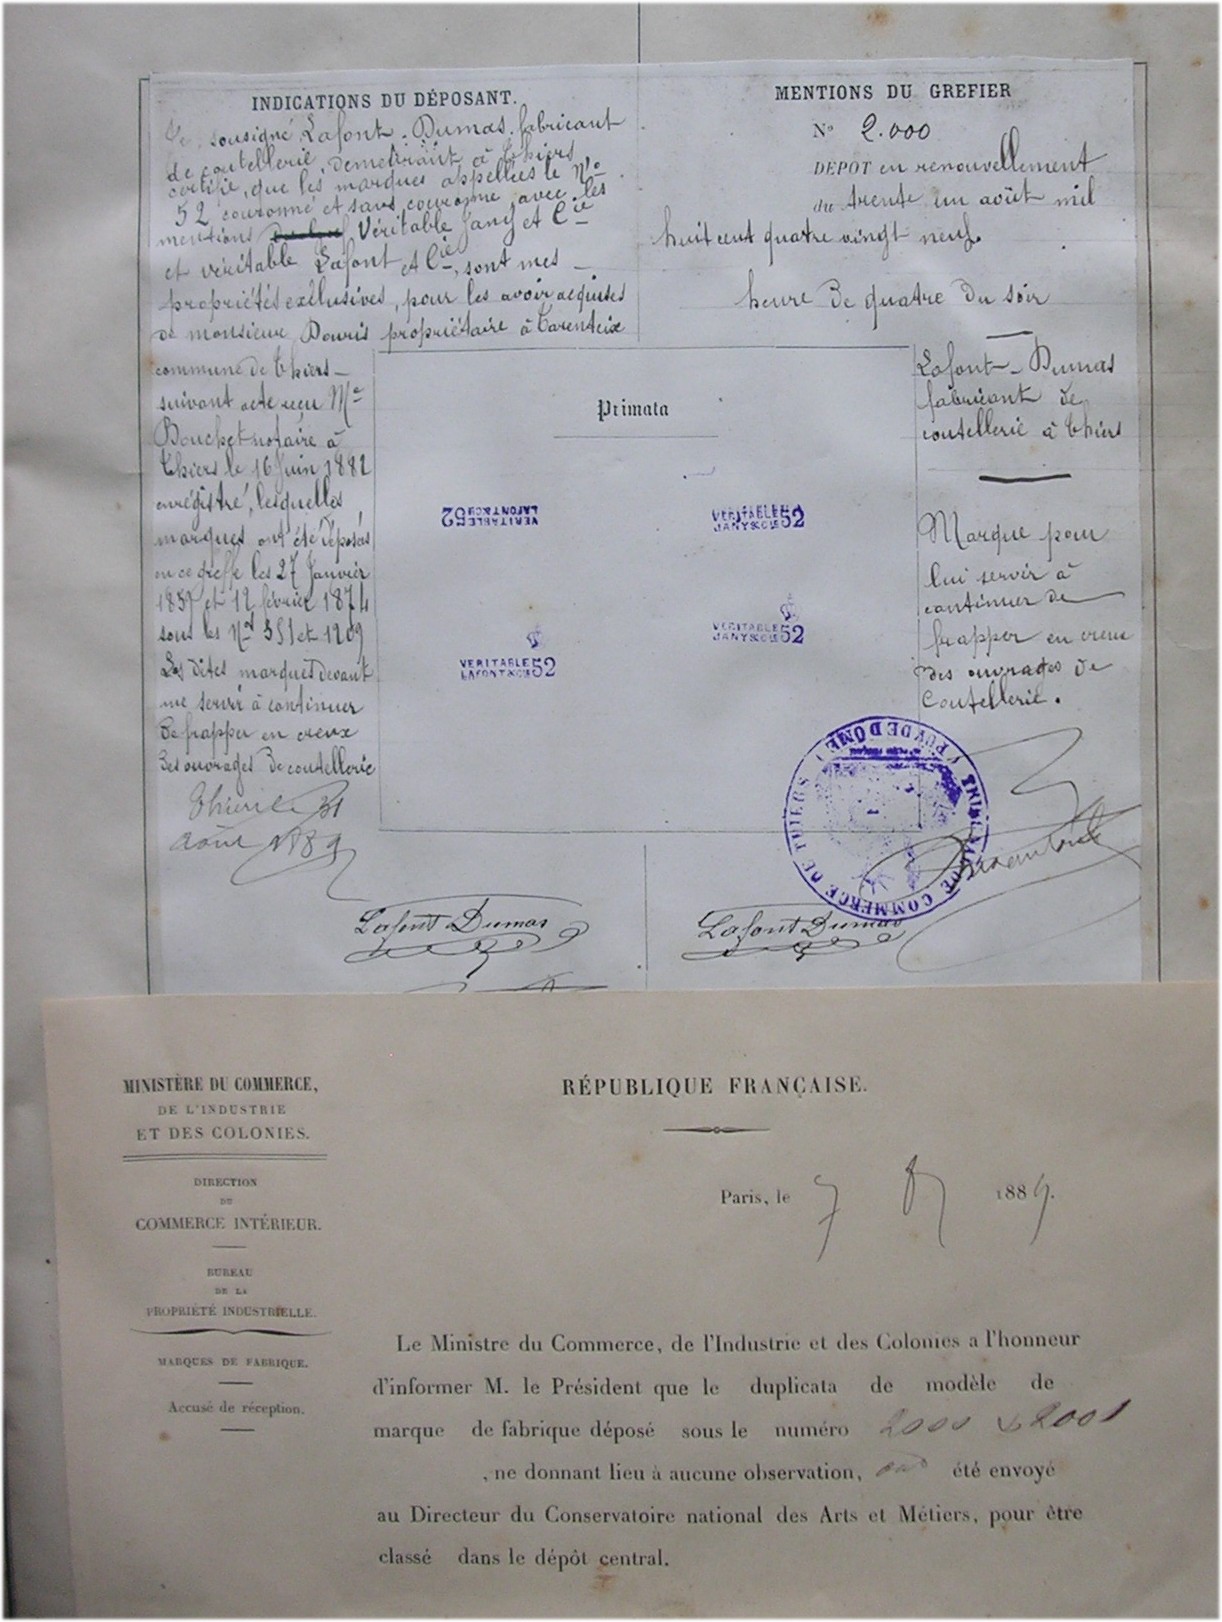 INDICATIONS DU DÉPOSANT.
soussigné Lafont-Dumas fabricant
de coutellerie, demeurant à Thiers
certifie, que les marques appellées le N°
52 couronné et sans couronne avec les
mentions Véritable Jany et Cie
et véritable Lafont et Cie, sont mes
propriétés exclusives, pour les avoir acquises
de monsieur Douris propriétaire à Tarenteix
commune de Thiers
suivant acte reçu Me
Bouchet notaire à
Thiers le 16 Juin 1882
enrégistré, lesquelles
marques ont été déposées
en ce greffe les 27 Janvier
1859 et 12 février 1874
sous les Nos 381 et 1209
Les dites marques devant
me servir à continuer
de frapper en creux
des ouvrages de coutellerie
Thiers le 31
août 1889
Lafont Dumas
MENTIONS DU GREFIER
N° 2.000
DÉPOT en renouvellement
du trente un août mil
huit cent quatre vingt neuf
heure de quatre du soir
Lafont-Dumas
fabricant de
coutellerie à Thiers
Marque pour
lui servir à
continuer de
frapper en creux
des ouvrages de
Coutellerie.
Primata
VERITABLE
LAFONT&CIE 52
VERITABLE
JANY&CIE 52
VERITABLE
LAFONT&CIE 52
VERITABLE
JANY&CIE 52
TRIBUNAL DE COMMERCE DE THIERS (PUY DE DOME)
Lafont Dumas
MINISTÈRE DU COMMERCE,
DE L'INDUSTRIE
ET DES COLONIES.
DIRECTION
DU
COMMERCE INTÉRIEUR.
BUREAU
DE LA
PROPRIÉTÉ INDUSTRIELLE.
MARQUES DE FABRIQUE.
Accusé de réception.
RÉPUBLIQUE FRANÇAISE.
Paris, le 7 1889.
Le Ministre du Commerce, de l'Industrie et des Colonies a l'honneur
d'informer M. le Président que le duplicata de modèle de
marque de fabrique déposé sous le numéro 2000 & 2001
, ne donnant lieu à aucune observation, été envoyé
au Directeur du Conservatoire national des Arts et Métiers, pour être
classé dans le dépôt central.